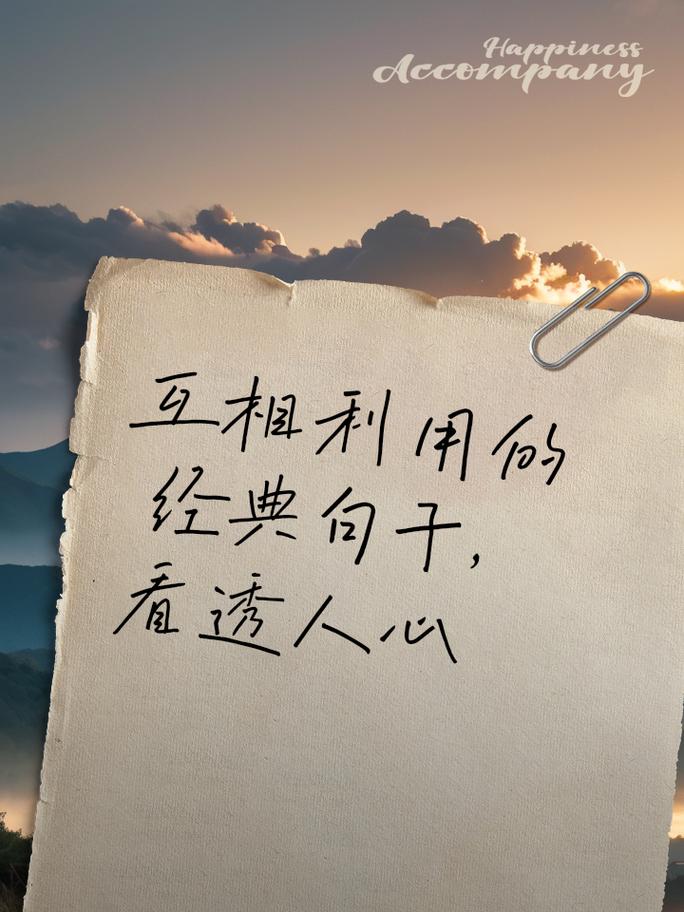 Happiness
Accompany
互相利用的
经典句子,
看透人心